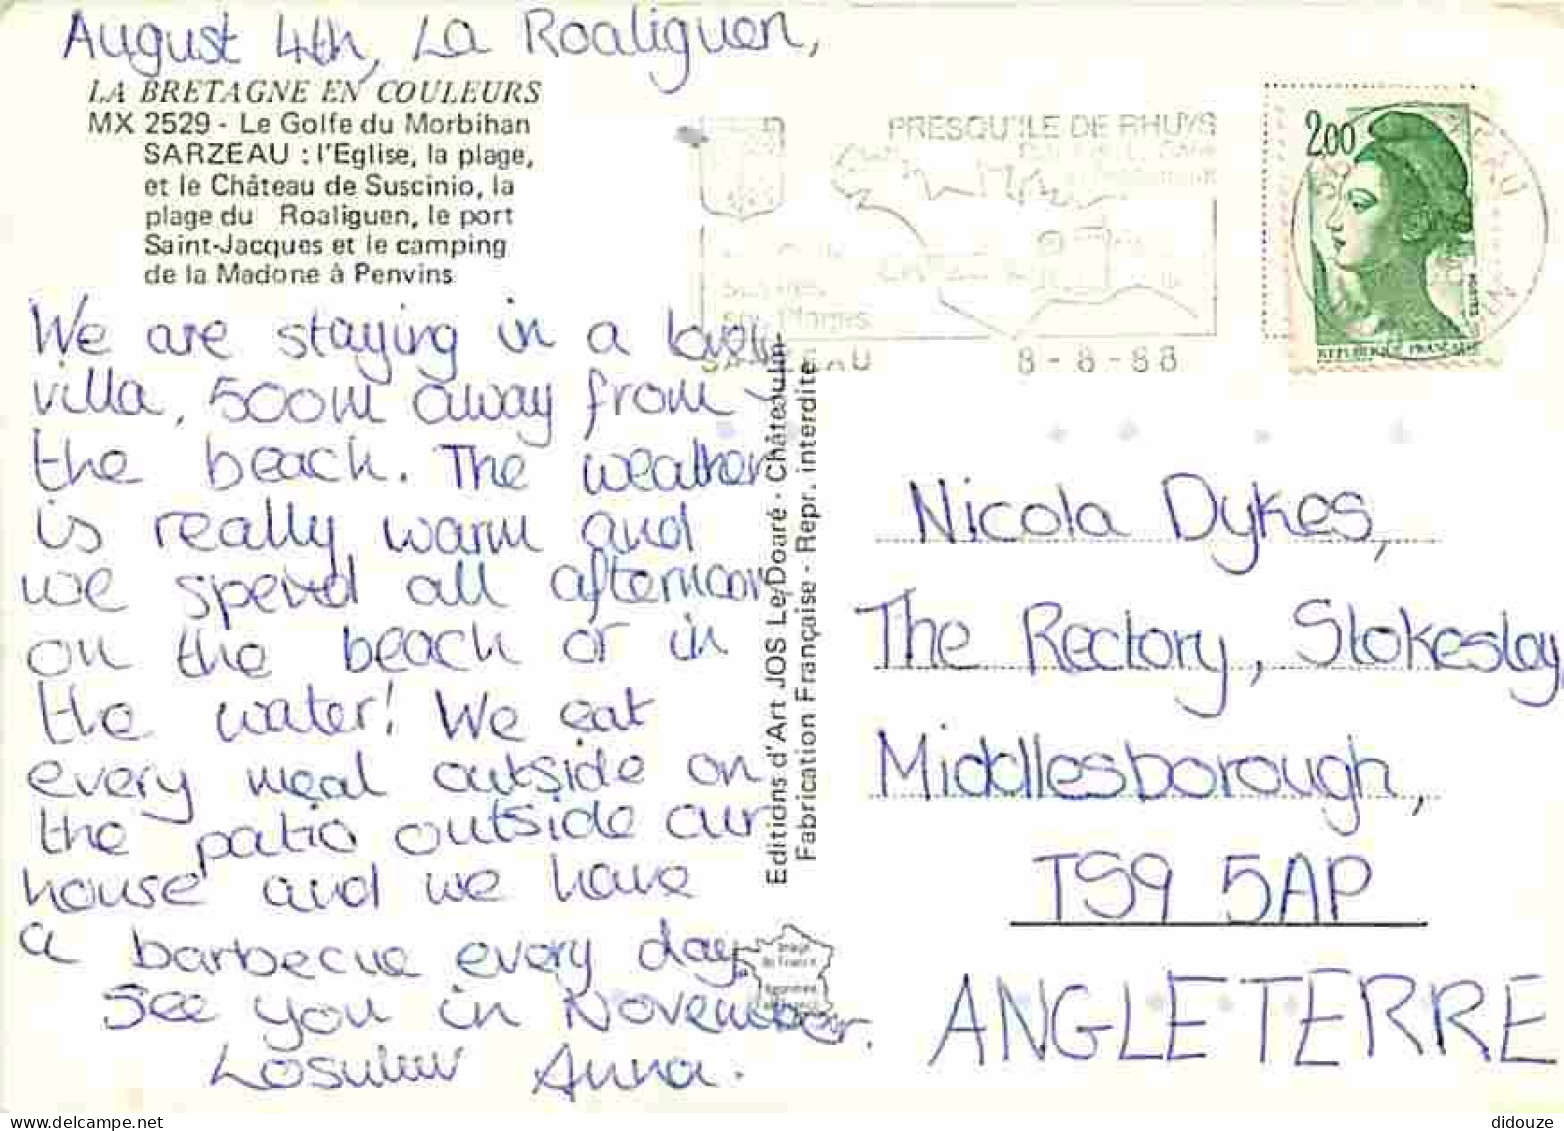 August 4th, La Roaliguen,
LA BRETAGNE EN COULEURS
MX 2529 - Le Golfe du Morbihan
SARZEAU : l'Eglise, la plage,
et le Château de Suscinio, la
plage du Roaliguen, le port
Saint-Jacques et le camping
de la Madone à Penvins
We are staying in a lovely
villa, 500m away from
the beach. The weather
is really warm and
we spend all afternoon
on the beach or in
the water! We eat
every meal outside on
the patio outside our
house and we have
a barbecue every day.
See you in November.
Anna.
Editions d'Art JOS Le Doaré - Châteaulin
Fabrication Française - Repr. interdite
Image
de France
PRESQU'ILE DE RHUYS
SARZEAU
8-8-88
2.00
REPUBLIQUE FRANÇAISE
Nicola Dykes,
The Rectory, Stokesley,
Middlesborough,
TS9 5AP
ANGLETERRE
didouze